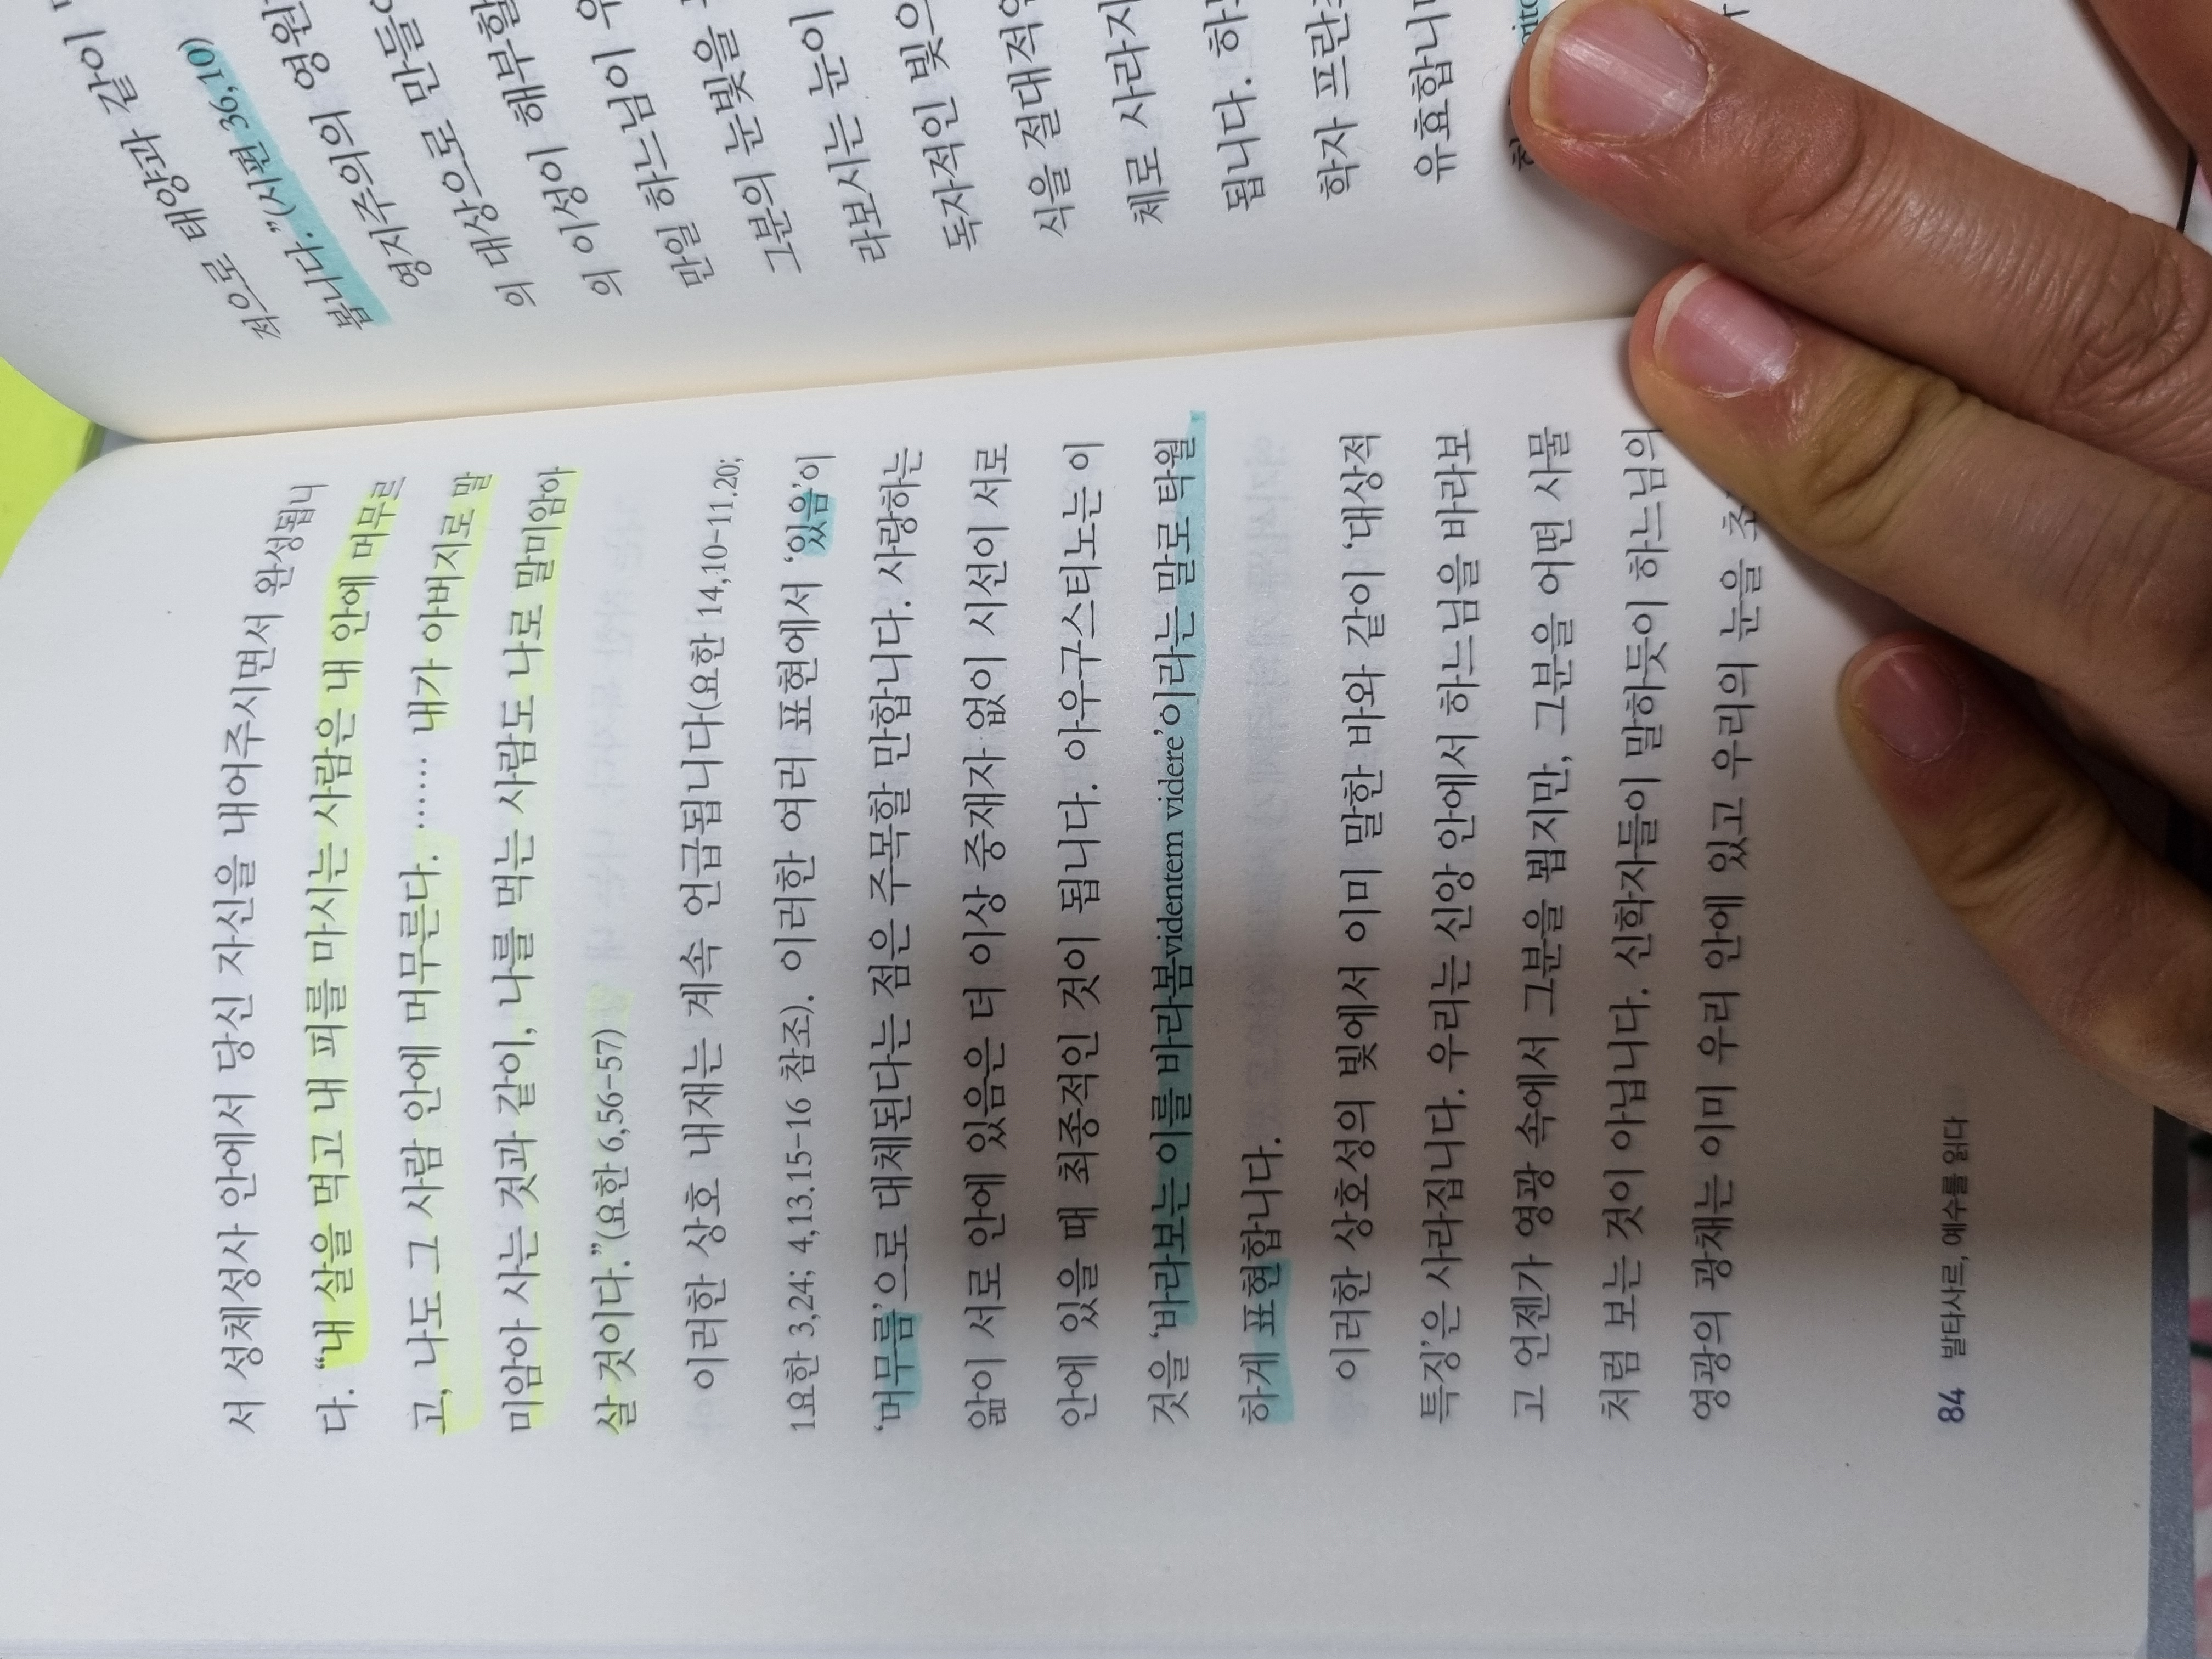 서 성체성사 안에서 당신 자신을 내어주시면서 완성됩니
다. “내 살을 먹고 내 피를 마시는 사람은 내 안에 머무르
고, 나도 그 사람 안에 머무른다. …… 내가 아버지로 말
미암아 사는 것과 같이, 나를 먹는 사람도 나로 말미암아
살 것이다.”(요한 6,56-57)
이러한 상호 내재는 계속 언급됩니다(요한 14,10-11.20;
1요한 3,24; 4,13.15-16 참조). 이러한 여러 표현에서 ‘있음’이
‘머무름’으로 대체된다는 점은 주목할 만합니다. 사랑하는
앎이 서로 안에 있음은 더 이상 중재자 없이 시선이 서로
안에 있을 때 최종적인 것이 됩니다. 아우구스티노는 이
것을 ‘바라보는 이를 바라봄videntem videre’이라는 말로 탁월
하게 표현합니다.
이러한 상호성의 빛에서 이미 말한 바와 같이 ‘대상적
특징’은 사라집니다. 우리는 신앙 안에서 하느님을 바라보
고 언젠가 영광 속에서 그분을 뵙지만, 그분을 어떤 사물
처럼 보는 것이 아닙니다. 신학자들이 말하듯이 하느님의
영광의 광채는 이미 우리 안에 있고 우리의 눈을
84 발타사르, 예수를 읽다
적으로 태양과 같이
봅니다.”(시편 36,10)
영지주의의 영원
의 대상으로 만들
의 이성이 해부할
만일 하느님이 우
그분의 눈빛을
라보시는 눈이
독자적인 빛으
식을 절대적인
체로 사라지
됩니다. 하
학자 프란
유효합니